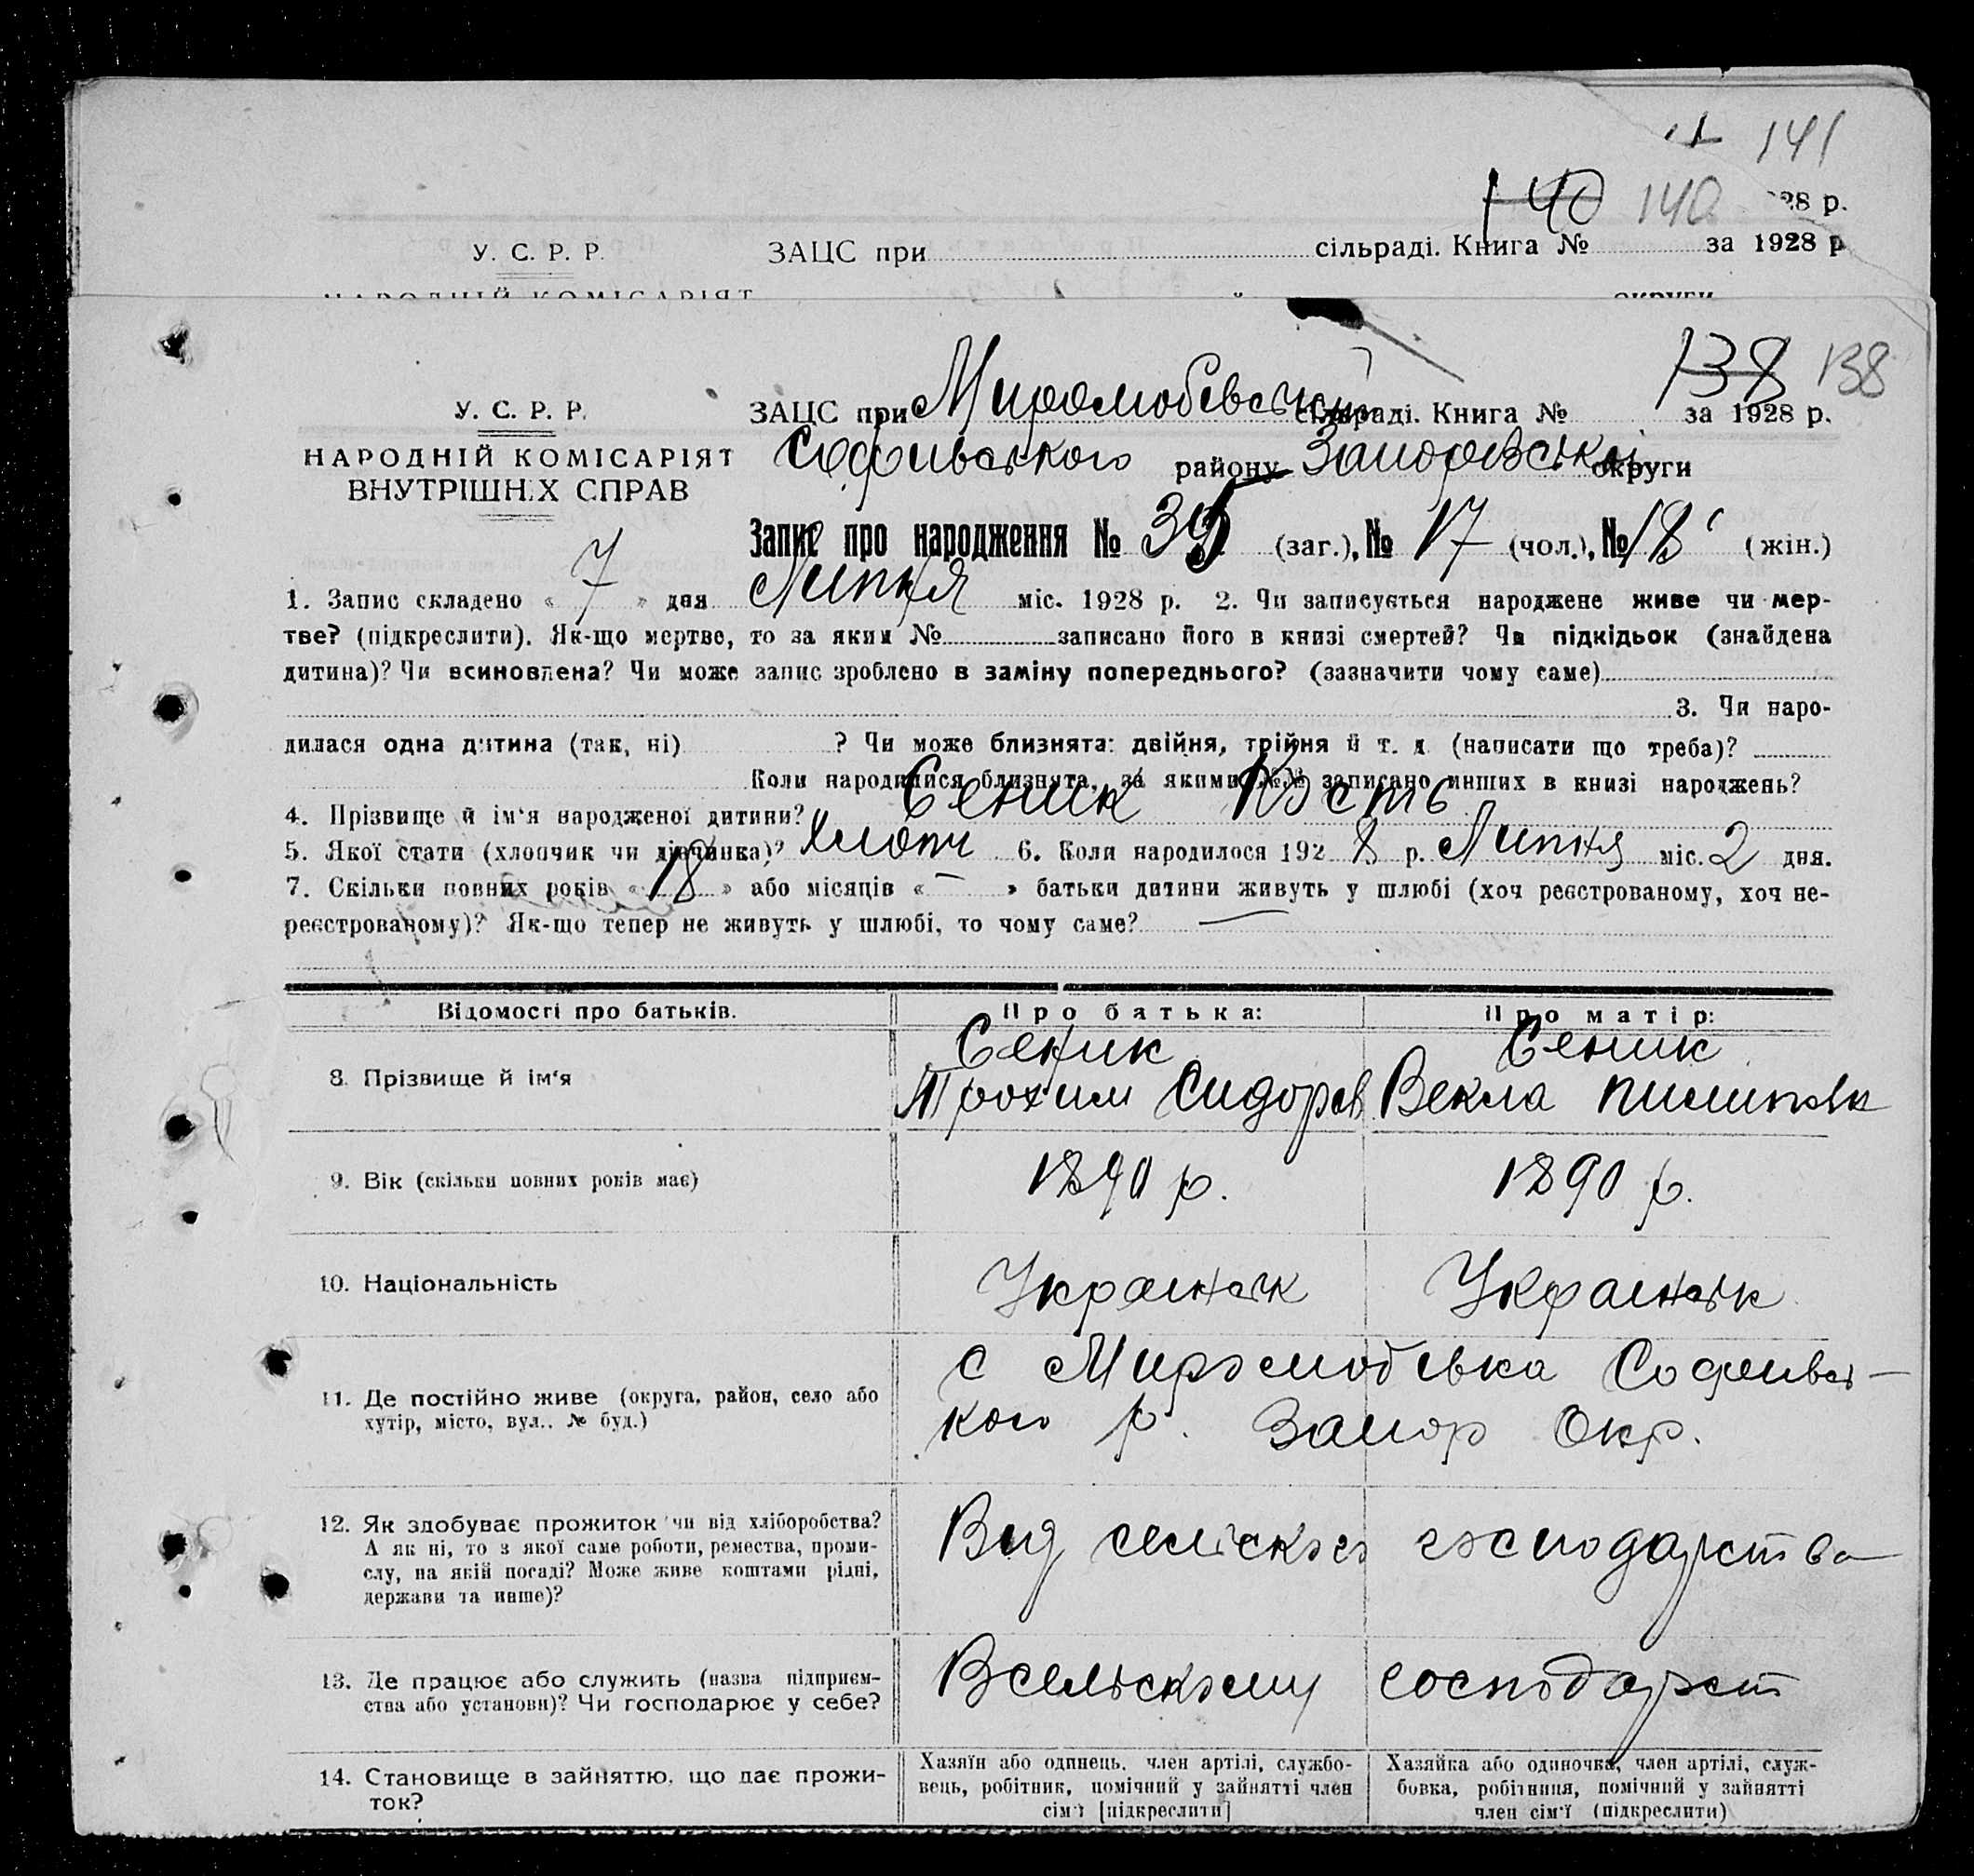 141
140 140 28 р.
У. С. Р. Р. ЗАЦС при сільраді. Книга № за 1928 р
НАРОДНІЙ КОМІСАРІЯТ округи
138 138
У. С. Р. Р. ЗАЦС при Миролюбівській сільраді. Книга № за 1928 р.
НАРОДНІЙ КОМІСАРІЯТ Софиівського району Запорозської округи
ВНУТРІШНІХ СПРАВ
Запис про народження № 35 (заг.), № 17 (чол.), № 18 (жін.)
1. Запис складено « 7 » дня Липня міс. 1928 р. 2. Чи записується народжене живе чи мер-
тве? (підкреслити). Як-що мертве, то за яким № записано його в книзі смертей? Чи підкідьок (знайдена
дитина)? Чи всиновлена? Чи може запис зроблено в заміну попереднього? (зазначити чому саме)
3. Чи наро-
дилася одна дитина (так, ні) ? Чи може близнята: двійня, трійня й т. д. (написати що треба)?
Коли народилися близнята, за якими №№ записано инших в книзі народжень?
4. Прізвище й ім'я народженої дитини? Сеник Кость
5. Якої стати (хлопчик чи дівчинка)? Хлопч 6. Коли народилося 192 8 р. Липня міс. 2 дня.
7. Скільки повних років « 18 » або місяців « – » батьки дитини живуть у шлюбі (хоч реєстрованому, хоч не-
реєстрованому)? Як-що тепер не живуть у шлюбі, то чому саме? —
Відомості про батьків. Про батька: Про матір:
8. Прізвище й ім'я Сеник Трохим Сидоров Сеник Векла
9. Вік (скільки повних років має) 1890 р. 1890 р.
10. Національність Украинськ Украинськ
11. Де постійно живе (округа, район, село або
хутір, місто, вул., № буд.)
с Миролюбівка Софиивсь-
кого р. Запор Окр.
12. Як здобуває прожиток чи від хліборобства?
А як ні, то з якої саме роботи, ремества, проми-
слу, на якій посаді? Може живе коштами рідні,
держави та инше)?
Вид сельского господарства
13. Де працює або служить (назва підприєм-
ства або установи)? Чи господарює у себе?
В сельскому господарст
14. Становище в зайняттю, що дає прожи-
ток?
Хазяїн або одинець, член артілі, службо-
вець, робітник, помічний у зайнятті член
сім'ї [підкреслити]
Хазяйка або одиночка, член артілі, служ-
бовка, робітниця, помічний у зайнятті
член сім'ї (підкреслити)